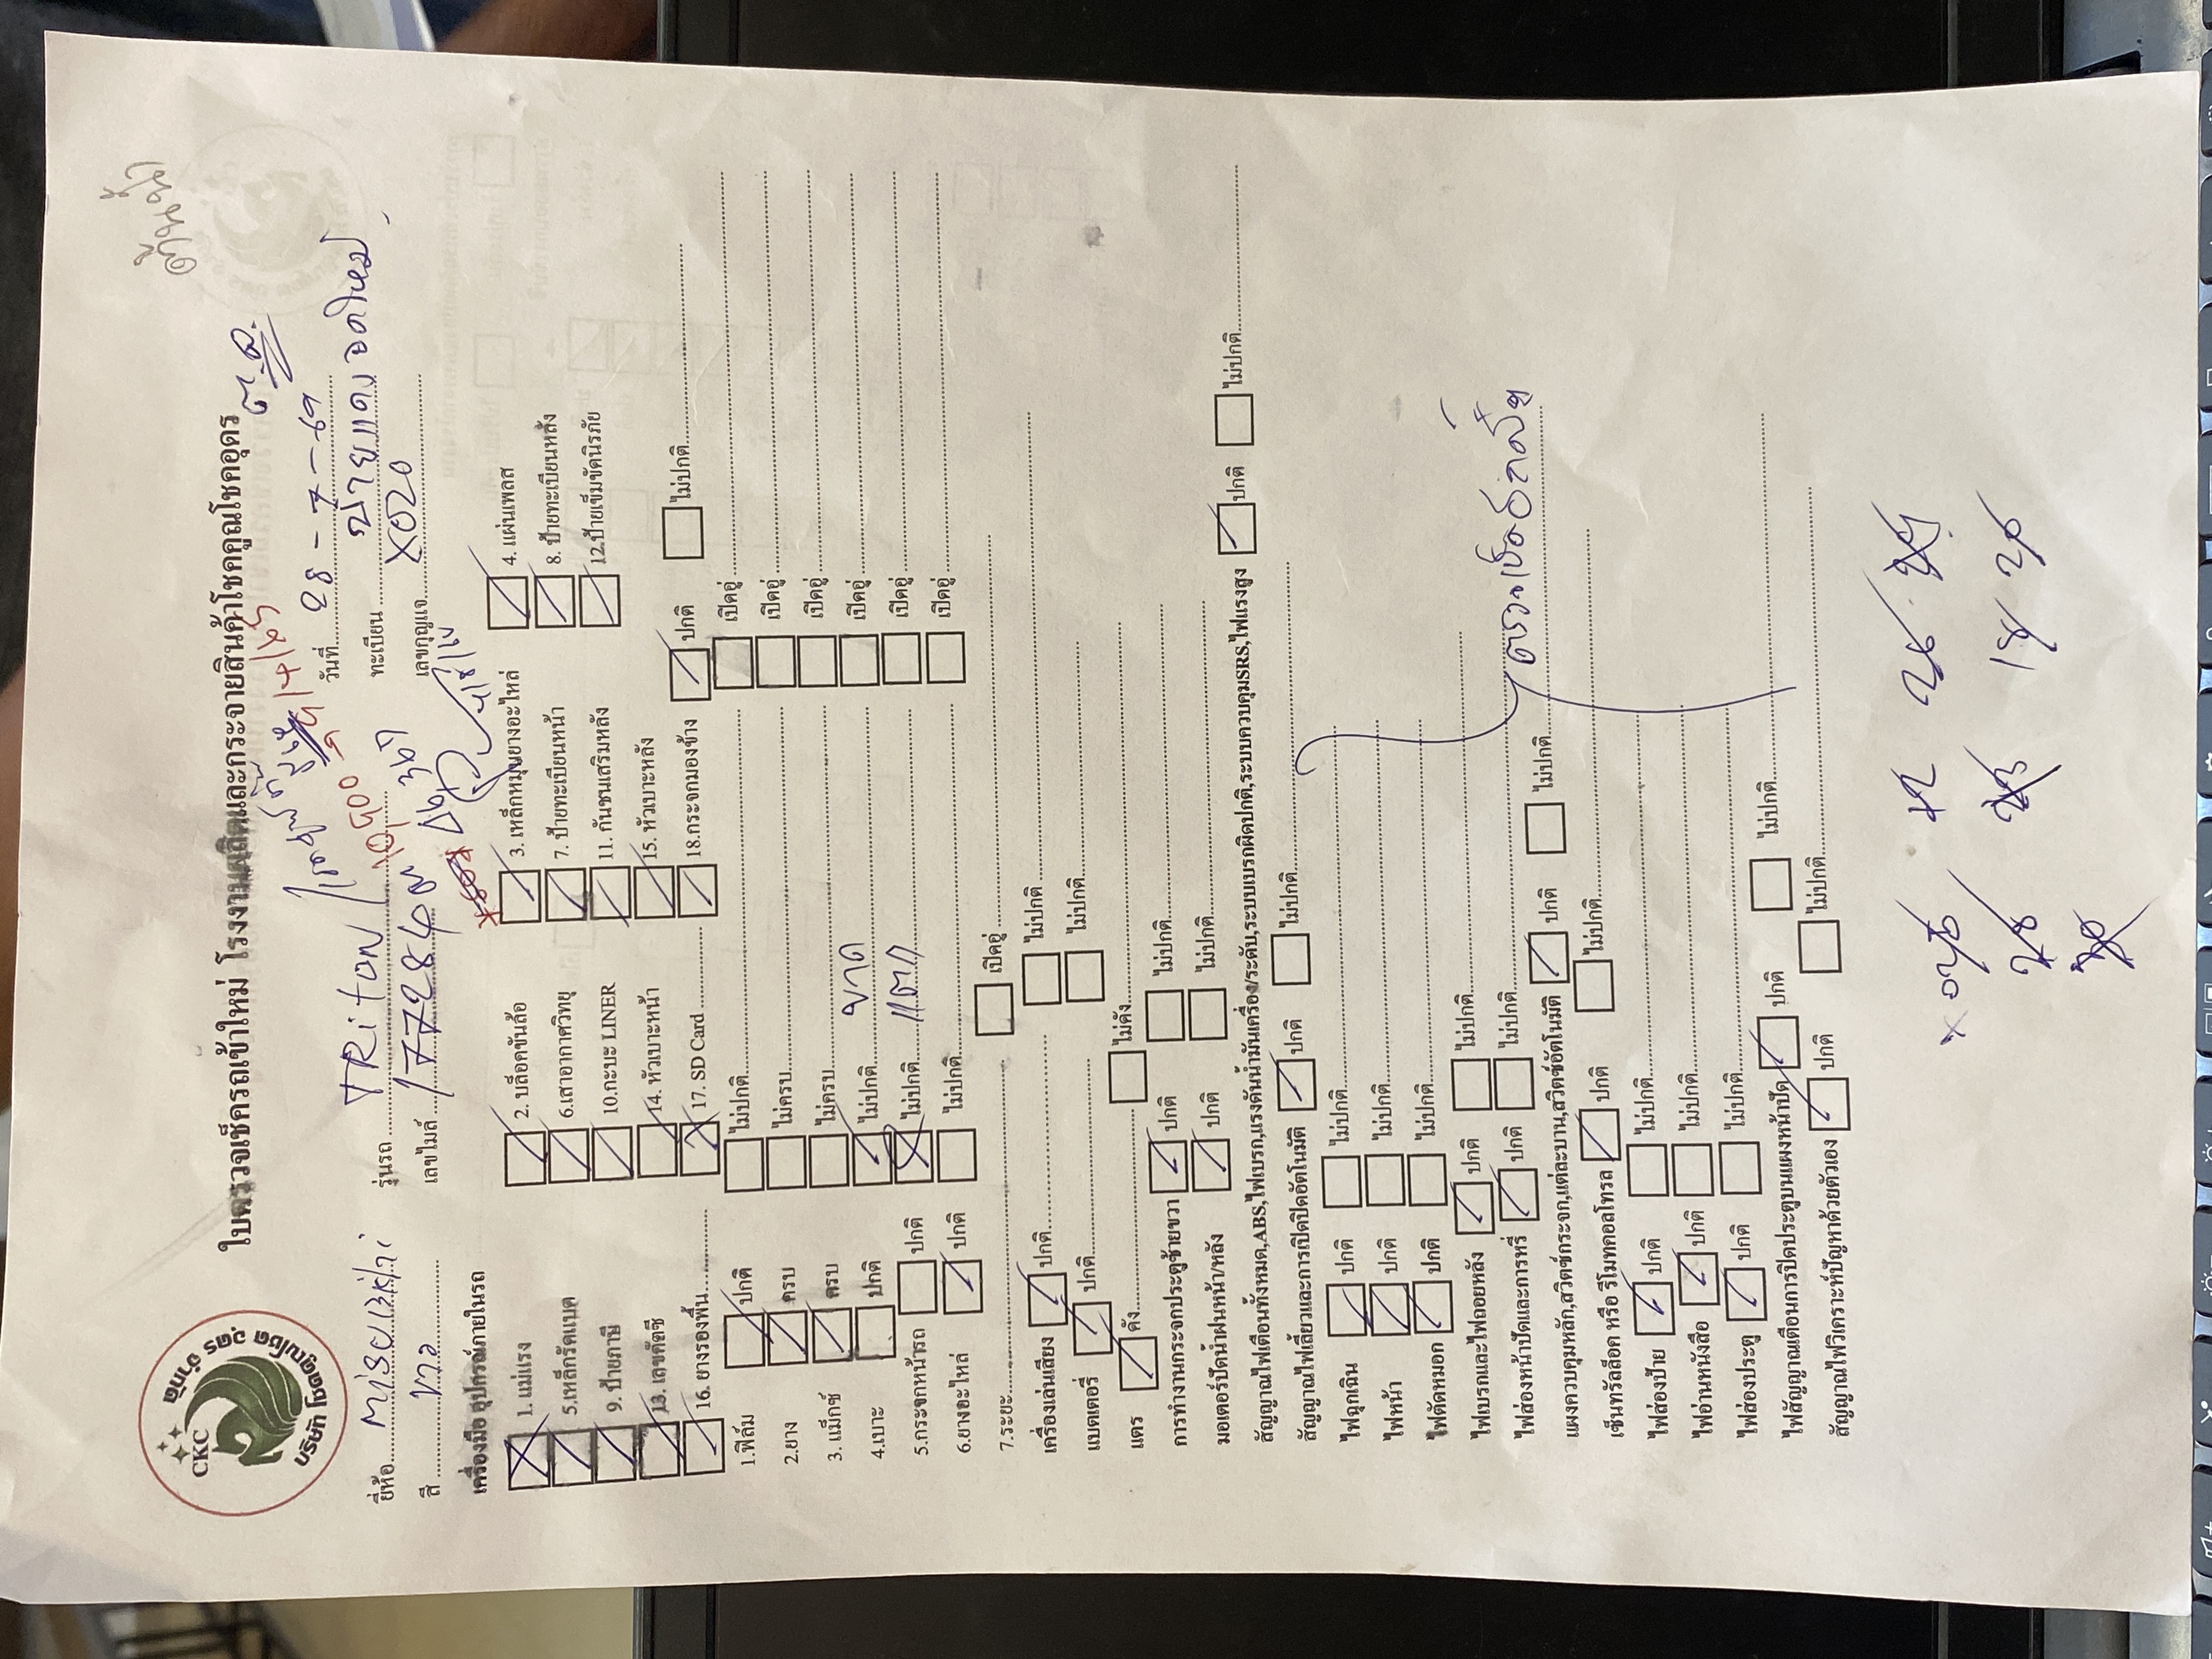 CKC
บริษัท โชคคูณโชค อุดร จำกัด
ใบตรวจเช็ครถเข้าใหม่ โรงงานผลิตและกระจายสินค้าโชคคูณโชคอุดร
ยี่ห้อ รุ่นรถ TRiton วันที่ 28 - 7 - 69
สี ขาว เลขไมล์ 177284 ทะเบียน ป้ายแดง
เลขกุญแจ X020
เครื่องมือ อุปกรณ์ภายในรถ
1. แม่แรง 2. บล็อคขันล้อ 3. เหล็กหมุนยางอะไหล่ 4. แผ่นเพลส
5.เหล็กรัดแบต 6.เสาอากาศวิทยุ 7. ป้ายทะเบียนหน้า 8. ป้ายทะเบียนหลัง
9. ป้ายภาษี 10.กะบะ LINER 11. กันชนเสริมหลัง 12.ป้ายเข็มขัดนิรภัย
13. เลขคัตซี 14. หัวเบาะหน้า 15. หัวเบาะหลัง
16. ยางรองพื้น 17. SD Card 18.กระจกมองข้าง ปกติ ไม่ปกติ
1.ฟิล์ม ปกติ ไม่ปกติ เปิดอู่
2.ยาง ครบ ไม่ครบ เปิดอู่
3. แม็กซ์ ครบ ไม่ครบ เปิดอู่
4.เบาะ ปกติ ไม่ปกติ ขาด เปิดอู่
5.กระจกหน้ารถ ปกติ ไม่ปกติ แตก เปิดอู่
6.ยางอะไหล่ ปกติ ไม่ปกติ เปิดอู่
7.ระยะ เปิดอู่
เครื่องเล่นเสียง ปกติ ไม่ปกติ
แบตเตอรี่ ปกติ ไม่ปกติ
แตร ดัง ไม่ดัง
การทำงานกระจกประตูซ้ายขวา ปกติ ไม่ปกติ
มอเตอร์ปัดน้ำฝนหน้า/หลัง ปกติ ไม่ปกติ
สัญญาณไฟเตือนทั้งหมด,ABS,ไฟเบรก,แรงดันน้ำมันเครื่อง/ระดับ,ระบบเบรกผิดปกติ,ระบบควบคุมSRS,ไฟแรงสูง ปกติ ไม่ปกติ
สัญญาณไฟเลี้ยวและการเปิดปิดอัตโนมัติ ปกติ ไม่ปกติ
ไฟฉุกเฉิน ปกติ ไม่ปกติ
ไฟหน้า ปกติ ไม่ปกติ
ไฟตัดหมอก ปกติ ไม่ปกติ
ไฟเบรกและไฟถอยหลัง ปกติ ไม่ปกติ
ไฟส่องหน้าปัดและการหรี่ ปกติ ไม่ปกติ
แผงควบคุมหลัก,สวิตช์กระจก,แต่ละบาน,สวิตช์อัตโนมัติ ปกติ ไม่ปกติ
เซ็นทรัลล็อค หรือ รีโมทคอลโทรล ปกติ ไม่ปกติ
ไฟส่องป้าย ปกติ ไม่ปกติ
ไฟอ่านหนังสือ ปกติ ไม่ปกติ
ไฟส่องประตู ปกติ ไม่ปกติ
ไฟสัญญาณเตือนการปิดประตูบนแผงหน้าปัด ปกติ ไม่ปกติ
สัญญาณไฟวิเคราะห์ปัญหาด้วยตัวเอง ปกติ ไม่ปกติ